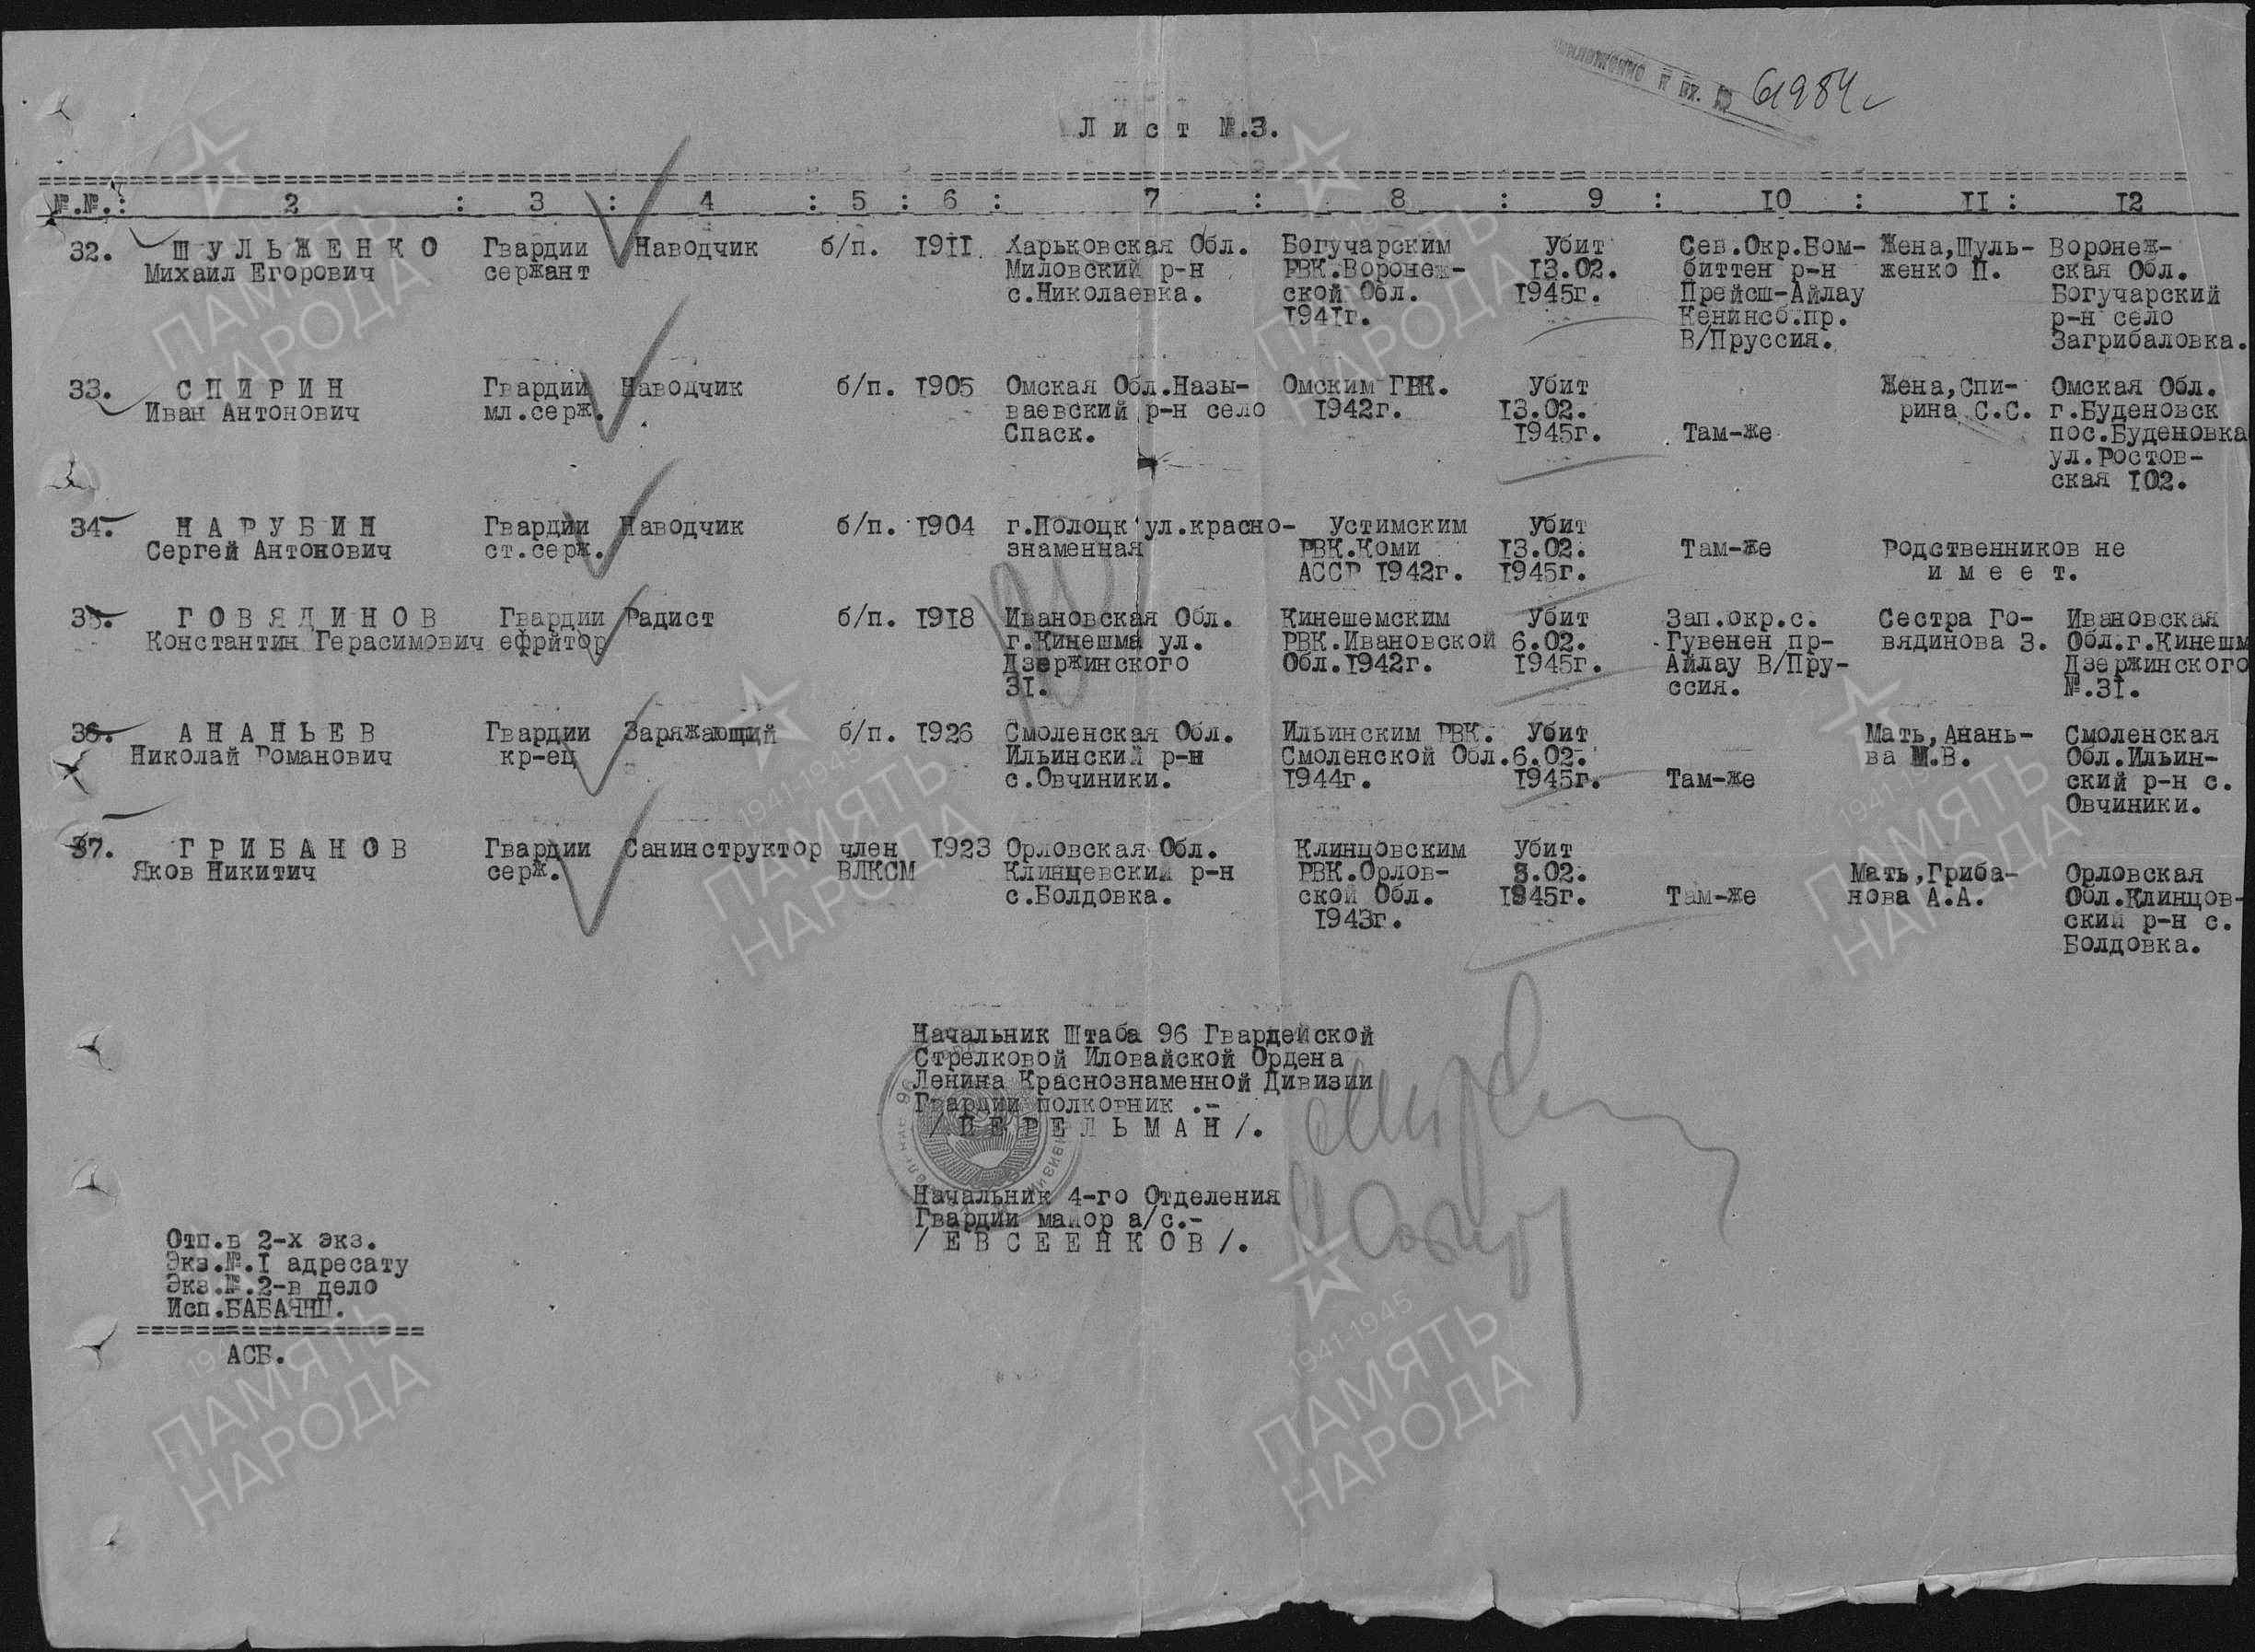 61984с
Лист №.3.
№.№.: 2 : 3 : 4 : 5 : 6 : 7 : 8 : 9 : 10 : 11 : 12
32. ШУЛЬЖЕНКО Гвардии Наводчик б/п. 1911 Харьковская Обл. Богучарским Убит Сев.Окр.Бом- Жена,Шуль- Воронеж-
Михаил Егорович сержант Миловский р-н РВК.Воронеж- 13.02. биттен р-н женко П. ская Обл.
с.Николаевка. ской Обл. 1945г. Прейсш-Айлау Богучарский
1941г. Кенинсб.пр. р-н село
В/Пруссия. Загрибаловка.
33. СПИРИН Гвардии Наводчик б/п. 1905 Омская Обл.Назы- Омским ГВК. Убит Жена,Спи- Омская Обл.
Иван Антонович мл.серж. ваевский р-н село 1942г. 13.02. рина С.С. г.Буденовск
Спаск. 1945г. Там-же пос.Буденовка
ул.Ростов-
ская 102.
34. НАРУБИН Гвардии Наводчик б/п. 1904 г.Полоцк ул.красно- Устимским Убит
Сергей Антонович ст.серж. знаменная РВК.Коми 13.02. Там-же Родственников не
АССР 1942г. 1945г. имеет.
35. ГОВЯДИНОВ Гвардии Радист б/п. 1918 Ивановская Обл. Кинешемским Убит Зап.окр.с. Сестра Го- Ивановская
Константин Герасимович ефрйтор г.Кинешма ул. РВК.Ивановской 6.02. Гувенен пр- вядинова З. Обл.г.Кинешм
Дзержинского Обл.1942г. 1945г. Айлау В/Пру- Дзержинского
31. ссия. №.31.
36. АНАНЬЕВ Гвардии Заряжающий б/п. 1926 Смоленская Обл. Ильинским РВК. Убит Мать,Анань- Смоленская
Николай Романович кр-ец Ильинский р-н Смоленской Обл. 6.02. ва М.В. Обл.Ильин-
с.Овчиники. 1944г. 1945г. Там-же ский р-н с.
Овчиники.
37. ГРИБАНОВ Гвардии Санинструктор член 1923 Орловская Обл. Клинцовским Убит
Яков Никитич серж. ВЛКСМ Клинцевский р-н РВК.Орлов- 8.02. Мать,Гриба- Орловская
с.Болдовка. ской Обл. 1945г. Там-же нова А.А. Обл.Клинцов-
1943г. ский р-н с.
Болдовка.
Начальник Штаба 96 Гвардейской
Стрелковой Иловайской Ордена
Ленина Краснознаменной Дивизии
Гвардии полковник .-
/ПЕРЕЛЬМАН/.
Начальник 4-го Отделения
Гвардии майор а/с.-
/ЕВСЕЕНКОВ/.
Отп.в 2-х экз.
Экз.№.1 адресату
Экз.№.2-в дело
Исп.БАБАЯНЦ.
АСБ.
ПАМЯТЬ
НАРОДА
ПАМЯТЬ
НАРОДА
1941-1945
ПАМЯТЬ
НАРОДА
1941-1945
ПАМЯТЬ
НАРОДА
ПАМЯТЬ
НАРОДА
1941-1945
ПАМЯТЬ
НАРОДА